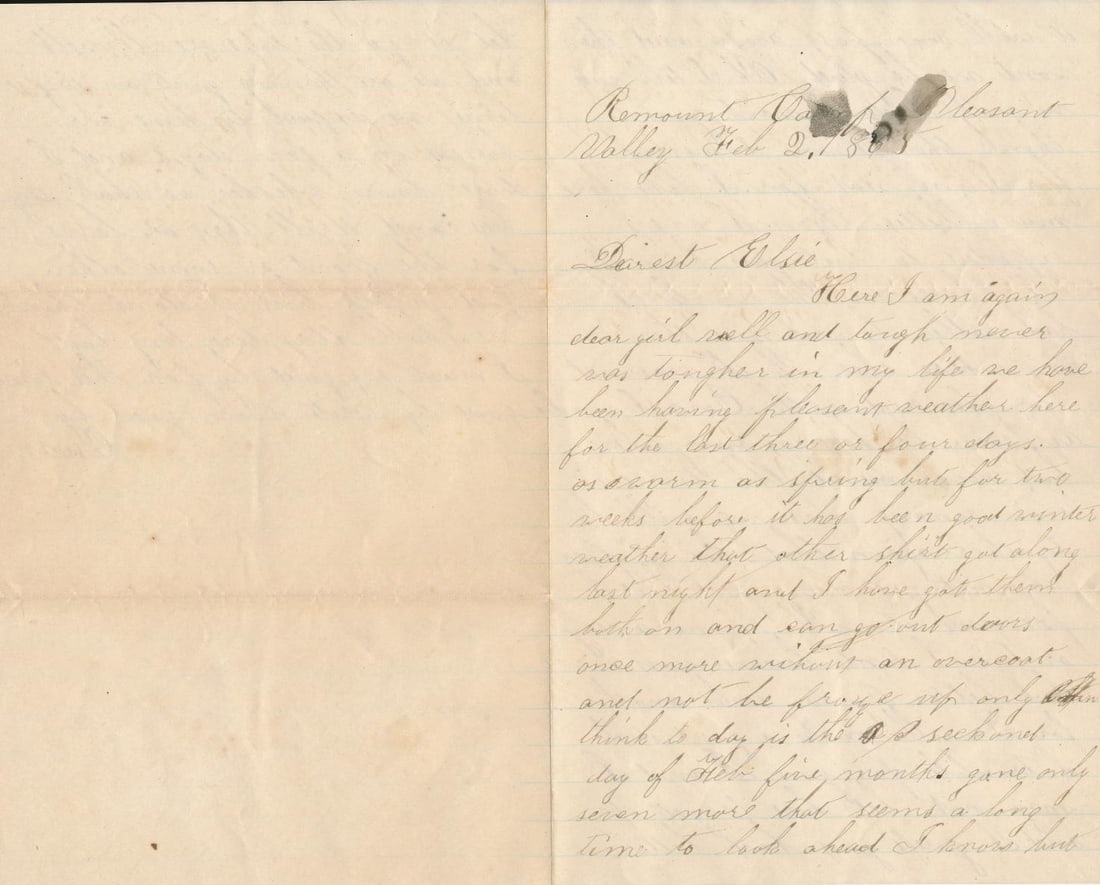 Remount Camp Pleasant
Valley Feb 2, 1865
Dearest Elsie
Here I am again
dear girl well and tough never
was tougher in my life we have
been having pleasant weather here
for the last three or four days.
as warm as spring but for two
weeks before it has been good winter
weather that other shirt got along
last night and I have got them
both on and can go out doors
once more without an overcoat
and not be froze up only
think to day is the seckond
day of Feb five months gone only
seven more that seems a long
time to look ahead I know but